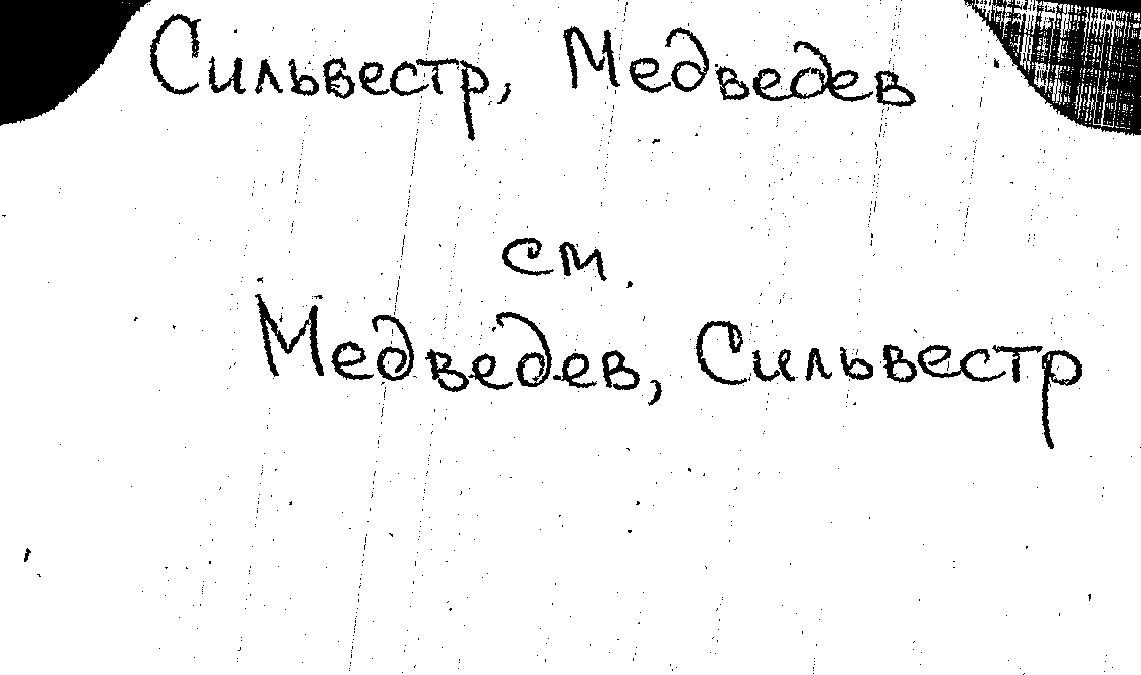 Сильвестр, Медведев
см.
Медведев, Сильвестр